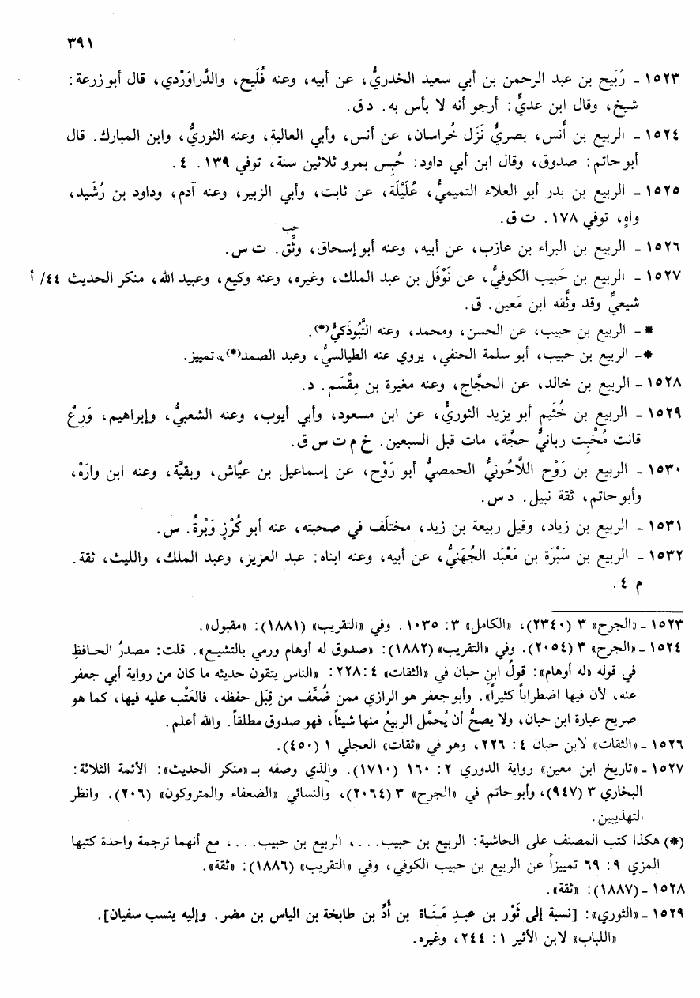 ٣٩١
١٥٢٣ - رُبَيح بن عبد الرحمن بن أبي سعيد الخدريُّ، عن أبيه، وعنه فُلَيح، والدَّراوَرْدي، قال أبو زرعة:
شيخ، وقال ابن عديٍّ: أرجو أنه لا بأس به. د ق.
١٥٢٤ - الربيع بن أنس، بصريٌّ نَزَل خُراسان، عن أنس، وأبي العالية، وعنه الثوريُّ، وابن المبارك. قال
أبو حاتم: صدوق، وقال ابن أبي داود: حُبِس بمرو ثلاثين سنة، توفي ١٣٩. ٤.
١٥٢٥ - الربيع بن بدر أبو العلاء التميميُّ، عُلَيْلَة، عن ثابت، وأبي الزبير، وعنه آدم، وداود بن رُشَيد،
واهٍ، توفي ١٧٨. ت ق.
حب
١٥٢٦ - الربيع بن البراء بن عازب، عن أبيه، وعنه أبو إسحاق، وثِّق. ت س.
١٥٢٧ - الربيع بن حَبيب الكوفيُّ، عن نَوْفَل بن عبد الملك، وغيره، وعنه وكيع، وعبيد الله، منكر الحديث ٤٤/ أ
شيعيٌّ وقد وثَّقه ابن مَعين. ق.
* - الربيع بن حبيب، عن الحسن، ومحمد، وعنه التَّبُوذَكيُّ(*).
* - الربيع بن حبيب، أبو سلمة الحنفي، يروي عنه الطيالسيُّ، وعبد الصمد(*)، تمييز.
١٥٢٨ - الربيع بن خالد، عن الحجَّاج، وعنه مغيرة بن مِقْسَم. د.
١٥٢٩ - الربيع بن خُثَيم أبو يزيد الثوريُّ، عن ابن مسعود، وأبي أيوب، وعنه الشعبيُّ، وإبراهيم، وَرِعٌ
قانت مُخْبِت ربانيٌّ حجَّة، مات قبل السبعين. خ م ت س ق.
١٥٣٠ - الربيع بن رَوْح اللَّاحُونيُّ الحمصيُّ أبو رَوْح، عن إسماعيل بن عيَّاش، وبقيَّة، وعنه ابن وارَهْ،
وأبو حاتم، ثقة نبيل. د س.
١٥٣١ - الربيع بن زياد، وقيل ربيعة بن زيد، مختلَف في صحبته، عنه أبو كُرْزٍ وَبَرةُ. س.
١٥٣٢ - الربيع بن سَبْرَة بن مَعْبَد الجُهَنيُّ، عن أبيه، وعنه ابناه: عبد العزيز، وعبد الملك، والليث، ثقة.
م ٤.
١٥٢٣ - «الجرح» ٣ (٢٣٤٠)، «الكامل» ٣: ١٠٣٥. وفي «التقريب» (١٨٨١): «مقبول».
١٥٢٤ - «الجرح» ٣ (٢٠٥٤). وفي «التقريب» (١٨٨٢): «صدوق له أوهام ورمي بالتشيع». قلت: مصدرُ الحافظِ
في قوله «له أوهام»: قولُ ابن حبان في «الثقات» ٤: ٢٢٨: «الناس يتقون حديثه ما كان من رواية أبي جعفر
عنه، لأن فيها اضطراباً كثيراً». وأبو جعفر هو الرازي ممن ضُعِّف من قِبَل حفظه، فالعَتْب عليه فيها، كما هو
صريح عبارة ابن حبان، ولا يصحُّ أن يُحمَّل الربيعُ منها شيئاً، فهو صدوق مطلقاً. والله أعلم.
١٥٢٦ - «الثقات» لابن حبان ٤: ٢٢٦، وهو في «ثقات» العجلي ١ (٤٥٠).
١٥٢٧ - «تاريخ ابن معين» رواية الدوري ٢: ١٦٠ (١٧١٠). والذي وصفه بـ «منكر الحديث»: الأئمة الثلاثة:
البخاري ٣ (٩٤٧)، وأبو حاتم في «الجرح» ٣ (٢٠٦٤)، والنسائي «الضعفاء والمتروكون» (٢٠٦). وانظر
التهذيبين.
(*) هكذا كتب المصنف على الحاشية: الربيع بن حبيب...، الربيع بن حبيب...، مع أنهما ترجمة واحدة كتبها
المزي ٩: ٦٩ تمييزاً عن الربيع بن حبيب الكوفي، وفي «التقريب» (١٨٨٦): «ثقة».
١٥٢٨ - (١٨٨٧): «ثقة».
١٥٢٩ - «الثوري»: [نسبة إلى ثَوْر بن عبدِ مَنَاة بن أُدِّ بن طابخة بن الياس بن مضر. وإليه ينسب سفيان].
«اللباب» لابن الأثير ١: ٢٤٤، وغيره.